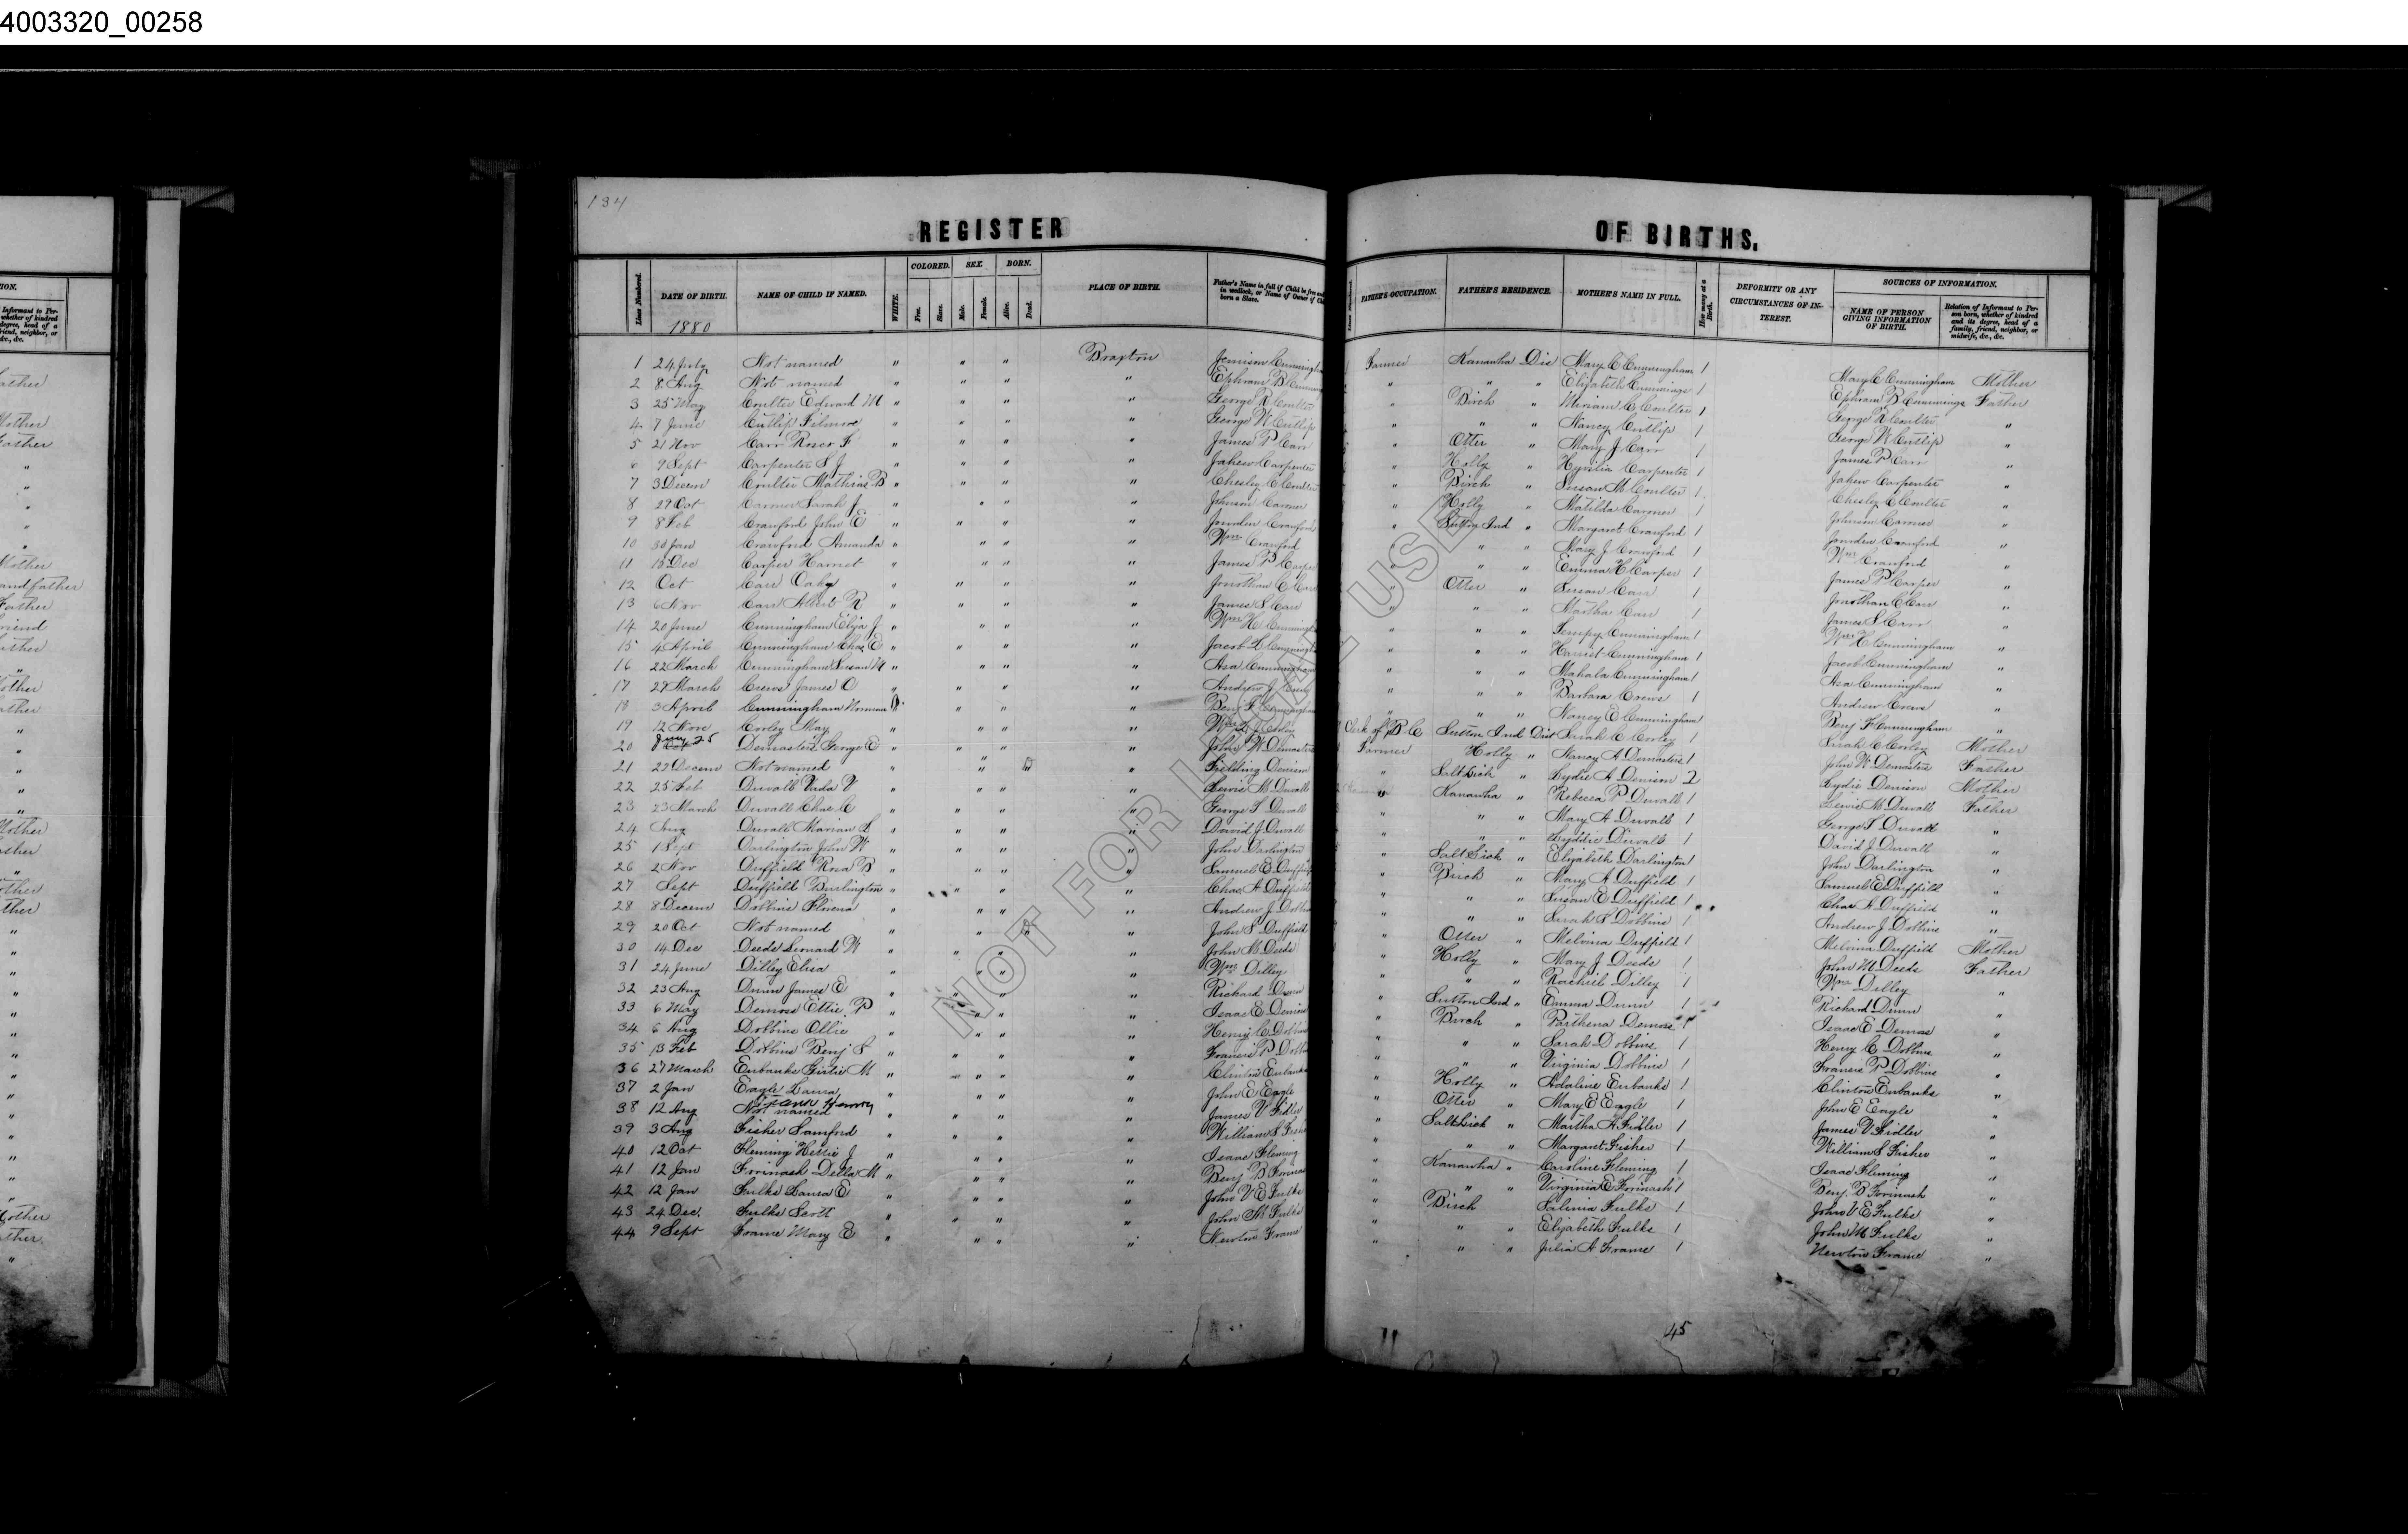 4003320_00258
134
REGISTER OF BIRTHS.
Lines Numbered. DATE OF BIRTH. NAME OF CHILD IF NAMED. WHITE. COLORED. Free. Slave. SEX. Male. Female. BORN. Alive. Dead. PLACE OF BIRTH. FATHER'S OCCUPATION. FATHER'S RESIDENCE. MOTHER'S NAME IN FULL. How many at a Birth. DEFORMITY OR ANY CIRCUMSTANCES OF INTEREST. SOURCES OF INFORMATION. NAME OF PERSON GIVING INFORMATION OF BIRTH. Relation of Informant to Person born, whether of kindred and its degree, head of a family, friend, neighbor, or midwife, &c., &c.
1880
1 24 July Not named " " " Braxton Farmer Kanawha Dis Mary C Cunningham 1 Mary C Cunningham Mother
2 8 Aug Not named " " " " Ephram B " " " Elizabeth 1 Ephram B Cummings Father
3 25 May Coulter Edward M " " " " George R Coulter " Birch " Miriam C Coulter 1 George R Coulter "
4 7 June Cutlip Filmore " " " " George W Cutlip " " " Nancy Cutlip 1 George W Cutlip "
5 21 Nov Carr F " " " " James P Carr " Otter " Mary J Carr 1 James P Carr "
6 9 Sept Carpenter S J " " " " Carpenter " Holly " Carpenter 1 Carpenter "
7 3 Decem Coulter Mathias B " " " " Chesley C Coulter " Birch " Susan M Coulter 1 Chesley C Coulter "
8 29 Oct Sarah J " " " " Johnson " Holly " Matilda 1 Johnson "
9 8 Feb Crawford John E " " " " Crawford " Sutton Ind " Margaret Crawford 1 Crawford "
10 30 Jan Crawford Amanda " " " " Wm Crawford " " " Mary J Crawford 1 Wm Crawford "
11 15 Dec Carper Harriet " " " " James P Carper " " " Emma H Carper 1 James P Carper "
12 Oct Carr " " " " Jonathan C Carr " Otter " Susan Carr 1 Jonathan C Carr "
13 6 Nov Carr Albert R " " " " James S Carr " " " Martha Carr 1 James S Carr "
14 20 June Cunningham Eliza J " " " " Wm H " " " Cunningham 1 Wm H Cunningham "
15 4 April Cunningham Chas E " " " " Jacob " " " Harriet Cunningham 1 Jacob Cunningham "
16 22 March Cunningham Susan M " " " " Asa Cunningham " " " Mahala Cunningham 1 Asa Cunningham "
17 29 March Crews James O " " " " Andrew J " " " Barbara Crews 1 Andrew Crews "
18 3 April Cunningham Norman " " " Benj F Cunningham " " " Nancy E Cunningham 1 Benj F Cunningham "
19 12 Nov Corley May " " " " Corley Clerk of B C Sutton Ind Dist Sarah C Corley 1 Sarah C Corley Mother
20 25 Demasters George E " " " " John W Demasters Farmer Holly " Nancy A Demasters 1 John W Demasters Father
21 22 Decem Not named " " " " Fielding Denison " Salt Lick " Lydie A Denison 2 Lydie Denison Mother
22 25 Feb Duvall V " " " " Lewis M Duvall " Kanawha " Rebecca P Duvall 1 Lewis M Duvall Father
23 23 March Duvall Chas C " " " " George T Duvall " " " Mary A Duvall 1 George T Duvall "
24 Aug Duvall Marian S " " " " David J Duvall " " " Lyddie Duvall 1 David J Duvall "
25 1 Sept Darlington John W " " " " John Darlington " Salt Lick " Elizabeth Darlington 1 John Darlington "
26 2 Nov Duffield Rosa B " " " " Samuel E Duffield " Birch " Mary A Duffield 1 Samuel E Duffield "
27 Sept Duffield Burlington " " " " Chas A Duffield " " " Susan E Duffield 1 Chas A Duffield "
28 8 Decem Dobbins Florena " " " " Andrew J Dobbins " " " Sarah S Dobbins 1 Andrew J Dobbins "
29 20 Oct Not named " " " " John S Duffield " Otter " Melvina Duffield 1 Melvina Duffield Mother
30 14 Dec Deeds Leonard W " " " " John M Deeds " Holly " Mary J Deeds 1 John M Deeds Father
31 24 June Dilley Eliza " " " " Wm Dilley " " " Rachiel Dilley 1 Wm Dilley "
32 23 Aug Dunn James E " " " " Richard Dunn " Sutton Ind " Emma Dunn 1 Richard Dunn "
33 6 May Demoss Ettie P " " " " Isaac E Demoss " Birch " Parthena Demoss 1 Isaac E Demoss "
34 6 Aug Dobbins Ollie " " " " Henry C Dobbins " " " Sarah Dobbins 1 Henry C Dobbins "
35 13 Feb Dobbins Benj S " " " " Francis P Dobbins " " " Virginia Dobbins 1 Francis P Dobbins "
36 27 March Eubanks Girtie M " " " " Clinton Eubanks " Holly " Adaline Eubanks 1 Clinton Eubanks "
37 2 Jan Eagle Laura " " " " John E Eagle " Otter " Mary E Eagle 1 John E Eagle "
38 12 Aug Not named Henry " " " " James V Fidler " Salt Lick " Martha A Fidler 1 James V Fidler "
39 3 Aug Fisher Samford " " " " William S Fisher " " " Margaret Fisher 1 William S Fisher "
40 12 Oct Fleming Hettie J " " " " Isaac Fleming " Kanawha " Caroline Fleming 1 Isaac Fleming "
41 12 Jan Forinash Della M " " " " Benj B Forinash " " " Virginia E Forinash 1 Benj. B Forinash "
42 12 Jan Fulks Laura E " " " " John V E Fulks " Birch " Salinia Fulks 1 John V E Fulks "
43 24 Dec. Fulks Scott " " " " John M Fulks " " " Elizabeth Fulks 1 John M Fulks "
44 9 Sept Frame Mary E " " " " Newton Frame " " " Julia A Frame 1 Newton Frame "
45
NOT FOR LEGAL USE